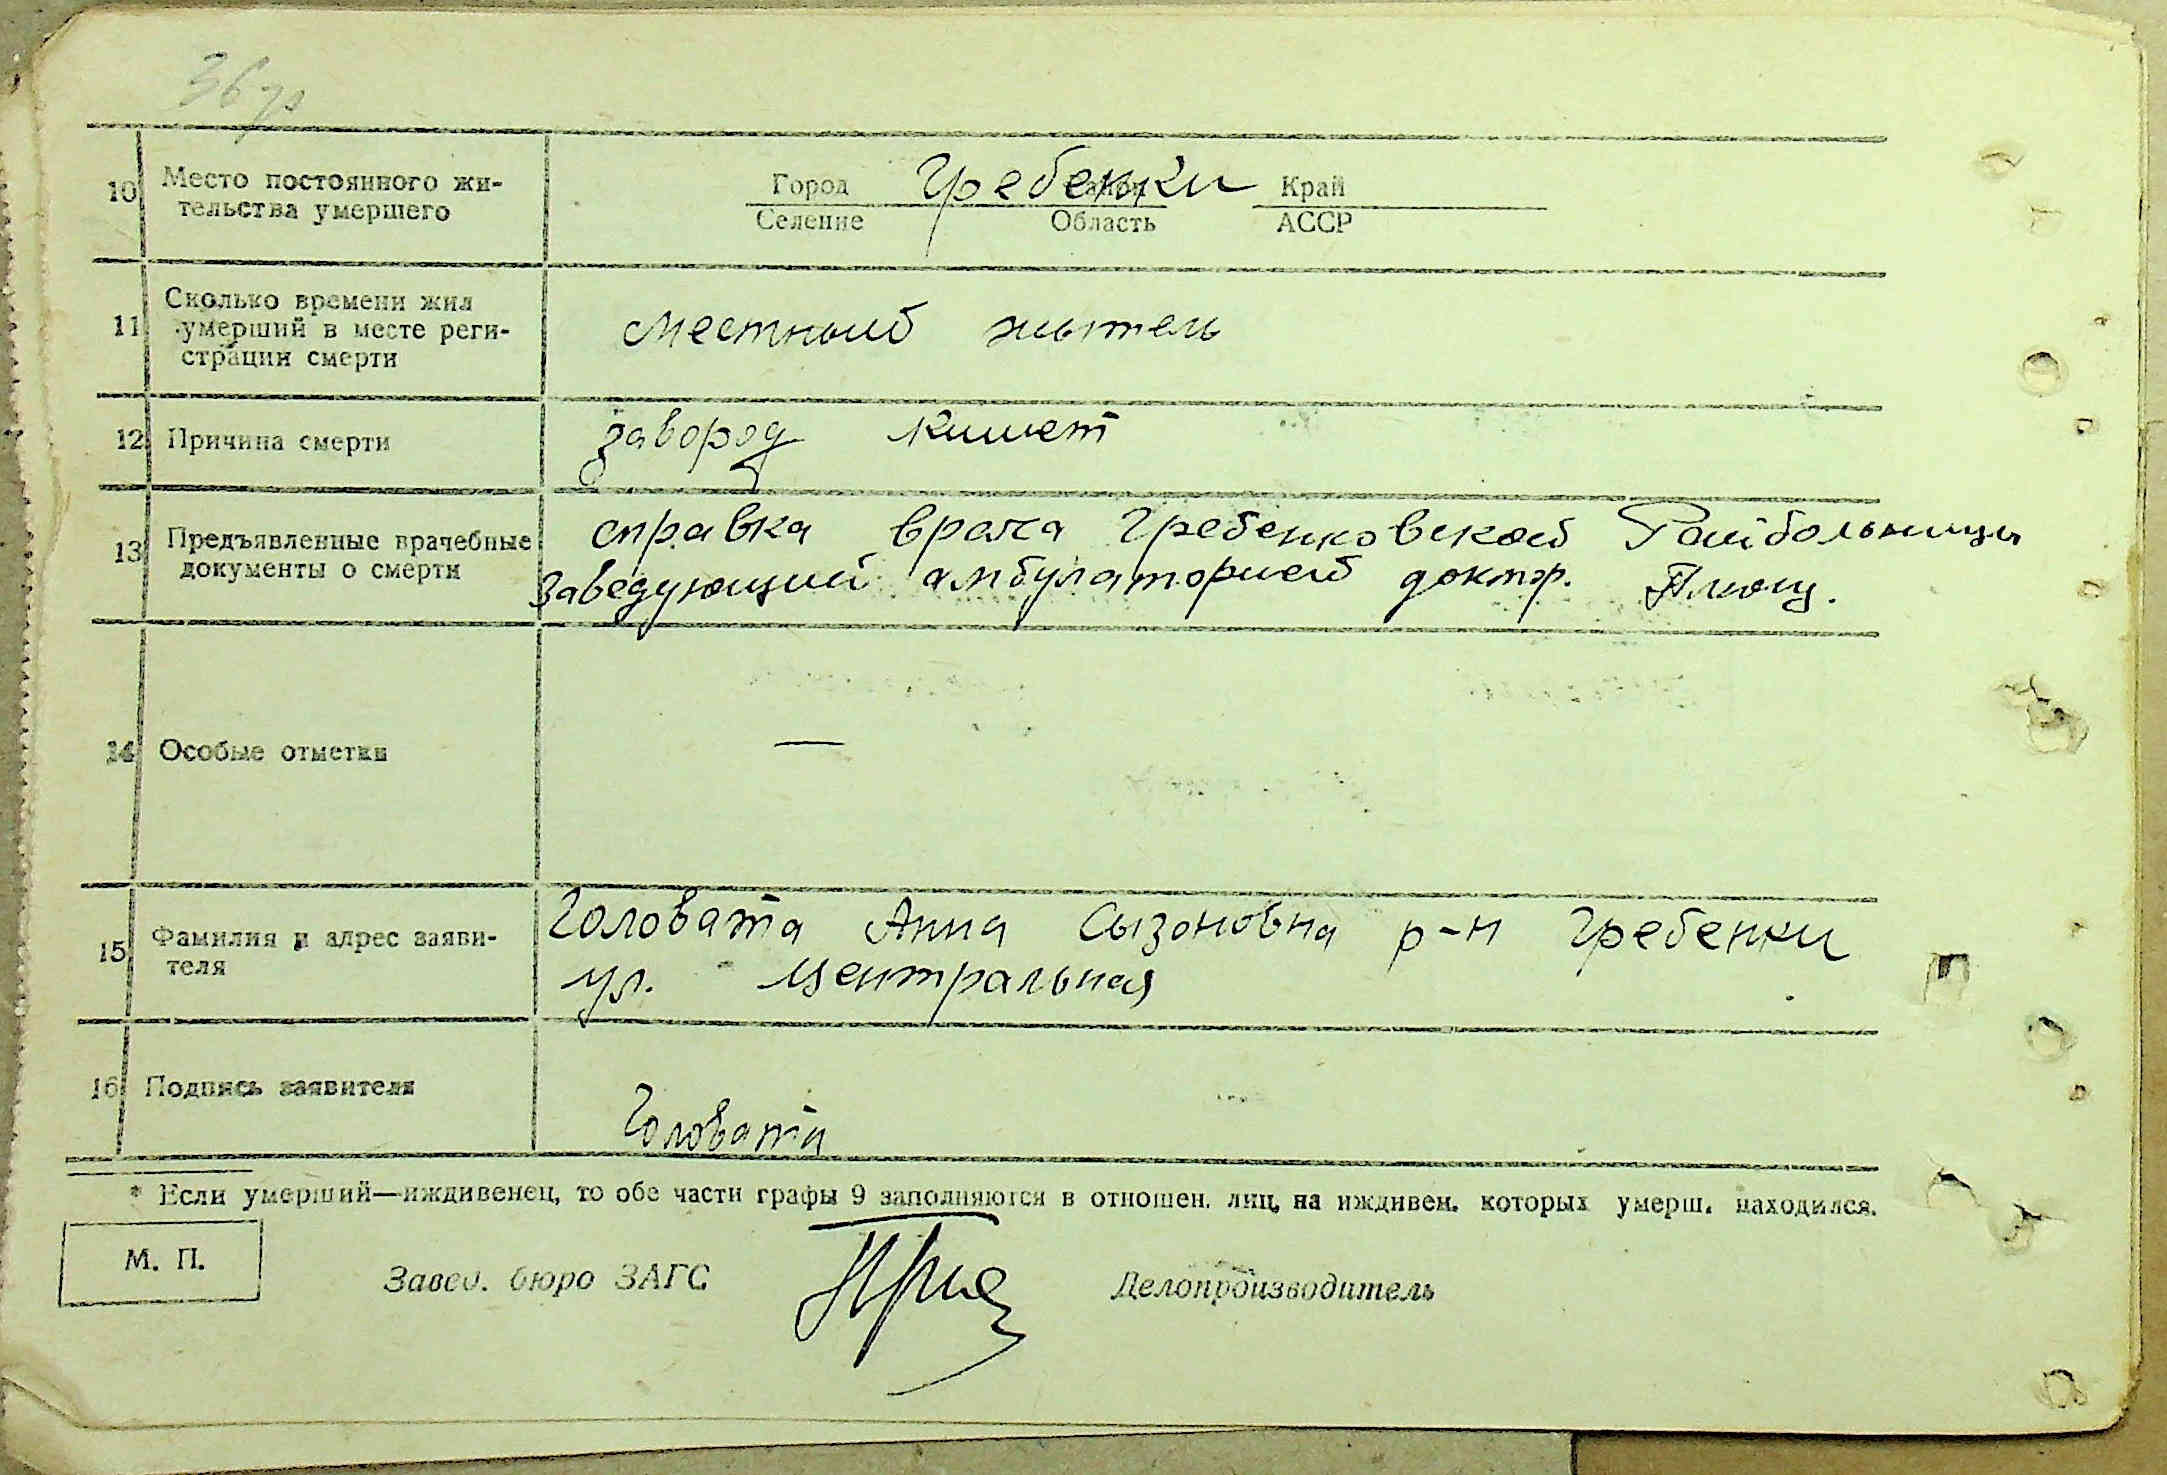 10 Место постоянного жи-
тельства умершего
Город Гребенки Край
Селение Область АССР
11 Сколько времени жил
умерший в месте реги-
страции смерти
местный житель
12 Причина смерти
заворот кишет
13 Предъявленные врачебные
документы о смерти
справка врача Гребенковской Райбольницы
Заведующий амбулаторией доктор.
14 Особые отметки
—
15 Фамилия и адрес заяви-
теля
Головата Анна Сызоновна р-н Гребенки
ул. Центральная
16 Подпись заявителя
Головата
* Если умерший—иждивенец, то обе части графы 9 заполняются в отношен. лиц, на иждивен. которых умерш. находился.
М. П.
Завед. бюро ЗАГС
Делопроизводитель